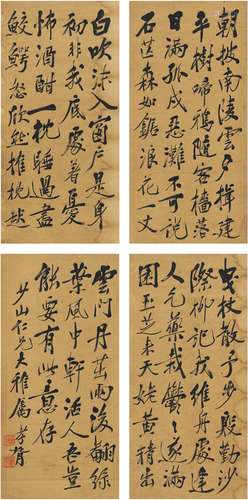 朝披南陵雲夕揖建
平樹啼鴉隨客檣落
日滿孤戍惡灘不可說
石芒森如鋸浪花一丈
白吹沫入窗戶是身
初非我底處著憂
怖酒酣一枕睡過盡
鮫鱷怒欣然推枕
曳杖散予步殷勤沙
際柳記我維舟處
人乞藥栽鬱鬱遂滿
園玉芝來天姥黃精出
雲門丹茁雨後翻綠
葉風中軒活人吾豈
能要有此意存
少山仁兄大雅屬 孝胥